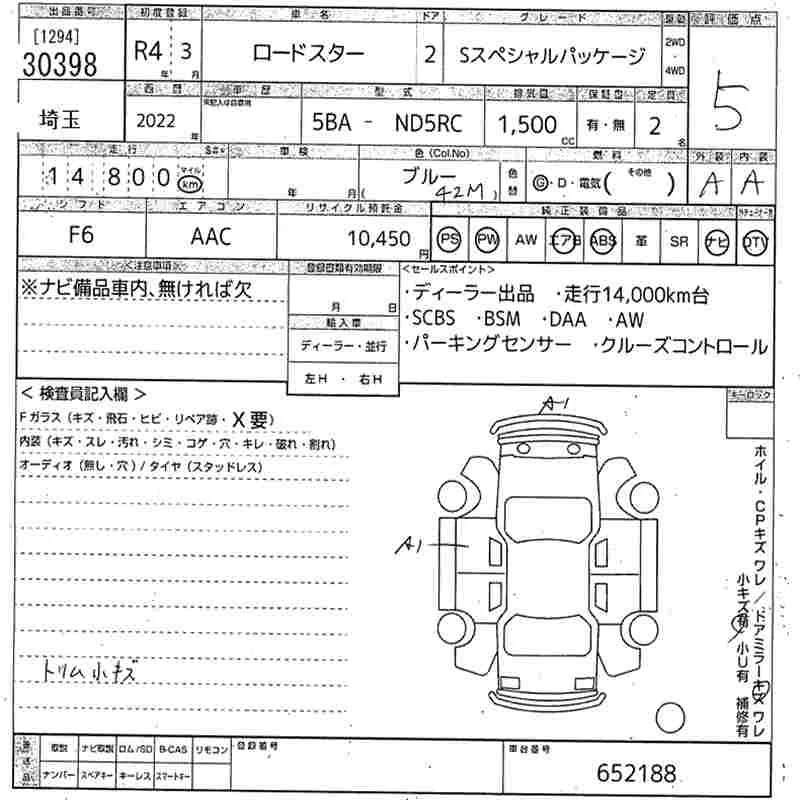 出品番号 初度登録 車名 ドア グレード 駆動 評価点
[1294]
30398 R4 3 年 月 ロードスター 2 Sスペシャルパッケージ 2WD・4WD 5
西暦 車歴 型式 排気量 保証書 定員
埼玉 2022 年 5BA - ND5RC 1,500 CC 有・無 2 名
走行 車検 色(Col.No) 燃料 外装 内装
14 800 マイル km 年 月 ブルー ( 42M ) 色替 G・D・電気( その他 ) A A
シフト エアコン リサイクル預託金 純正装備品
F6 AAC 10,450 円 PS PW AW エアB ABS 革 SR ナビ DTV
<注意事項> 登録書類有効期限 <セールスポイント>
※ナビ備品車内、無ければ欠
月 日
・ディーラー出品 ・走行14,000km台
輸入車 ・SCBS ・BSM ・DAA ・AW
ディーラー・並行 ・パーキングセンサー ・クルーズコントロール
左H ・ 右H
< 検査員記入欄 >
キーロック
Fガラス(キズ・飛石・ヒビ・リペア跡・X要)
内装(キズ・スレ・汚れ・シミ・コゲ・穴・キレ・破れ・割れ)
オーディオ(無し・穴)/タイヤ(スタッドレス)
A1
A1
ホイル・CPキズ ワレ/ドアミラーキズ ワレ
小キズ有 小U有 補修有
トリム小キズ
取説 ナビ取説 ロム/SD B-CAS リモコン 登録番号 車台番号
ナンバー スペアキー キーレス スマートキー
652188